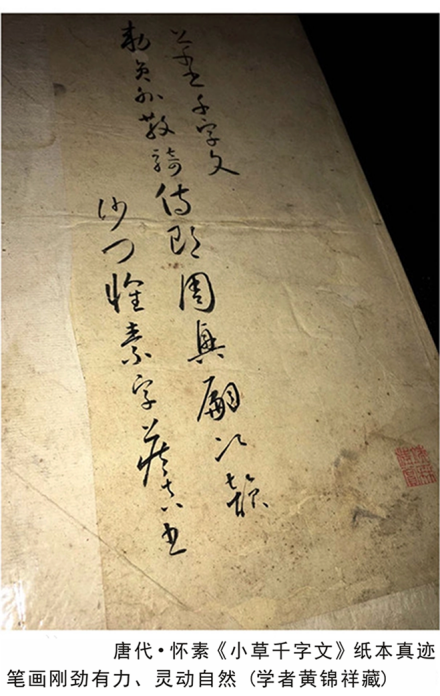 草千字文
勅員外散騎侍郎周興嗣次韻
沙門懷素字藏真書
唐代·怀素《小草千字文》纸本真迹
笔画刚劲有力、灵动自然 (学者黄锦祥藏)